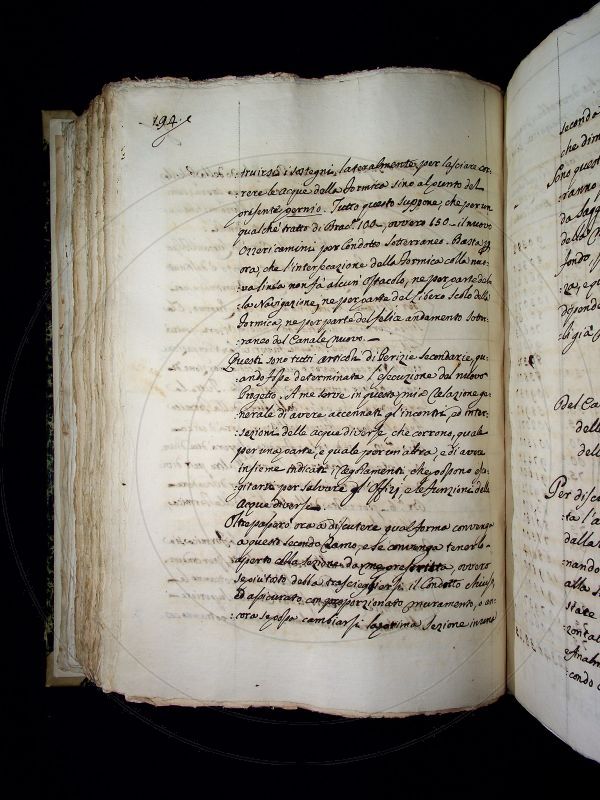 194.
:truirsi i sostegni lateralmente per lasciare cor-
rere le acque della Formica sino al punto del
presente pernio. Tutto questo suppone, che per un
qualche tratto di Brac.ᵃ 100 — ovvero 150 — il nuovo
camini per Condotto Sotterraneo. Basta p
ora, che l'intersecazione della Formica colla nuo-
va linea non fà alcun' Ostacolo, ne per parte del-
la Navigazione, ne per parte del libero Scolo della
Formica, ne per parte del felice andamento Sotter-
:raneo del Canale Nuovo. —
Questi sono tutti articoli di Perizie Secondarie, qu-
:ando fosse determinata l'esecuzione del nuovo
Progetto. A me serve in questa mia Relazione ge-
:nerale di avere accennati gl'incontri, ed inter-
:sezioni delle acque diverse che corrono, quale
per una parte, e quale per un'altra, e di avere
insieme indicati i Regolamenti, che possono
:gitarsi per salvare gl'Offizj, e le funzioni delle
Acque diverse.
Oltrepasserò ora a discutere qual forma convenga
a questo secondo Ramo, e se convenga tenerlo
aperto colla sezione da me prescritta, ovvero
se piutosto debba trasciegliersi il Condotto chiuso,
ed assicurato con proporzionato muramento, o an-
cora se possa cambiarsi la prima Sezione in una
secondo
che dim
sono quest
ranno
da
della
fondo
za, e
dipende
li già
Del Ca
dell
del
Per disc
ta l'a
dalla
nando
alla
state
zontal
condo